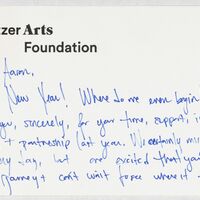 tzer Arts
Foundation
New Year! Where do we even begin
you, sincerely, for your time, support, i
+ partnership last year. We certainly mis
day, but are excited that you
journey + can't wait